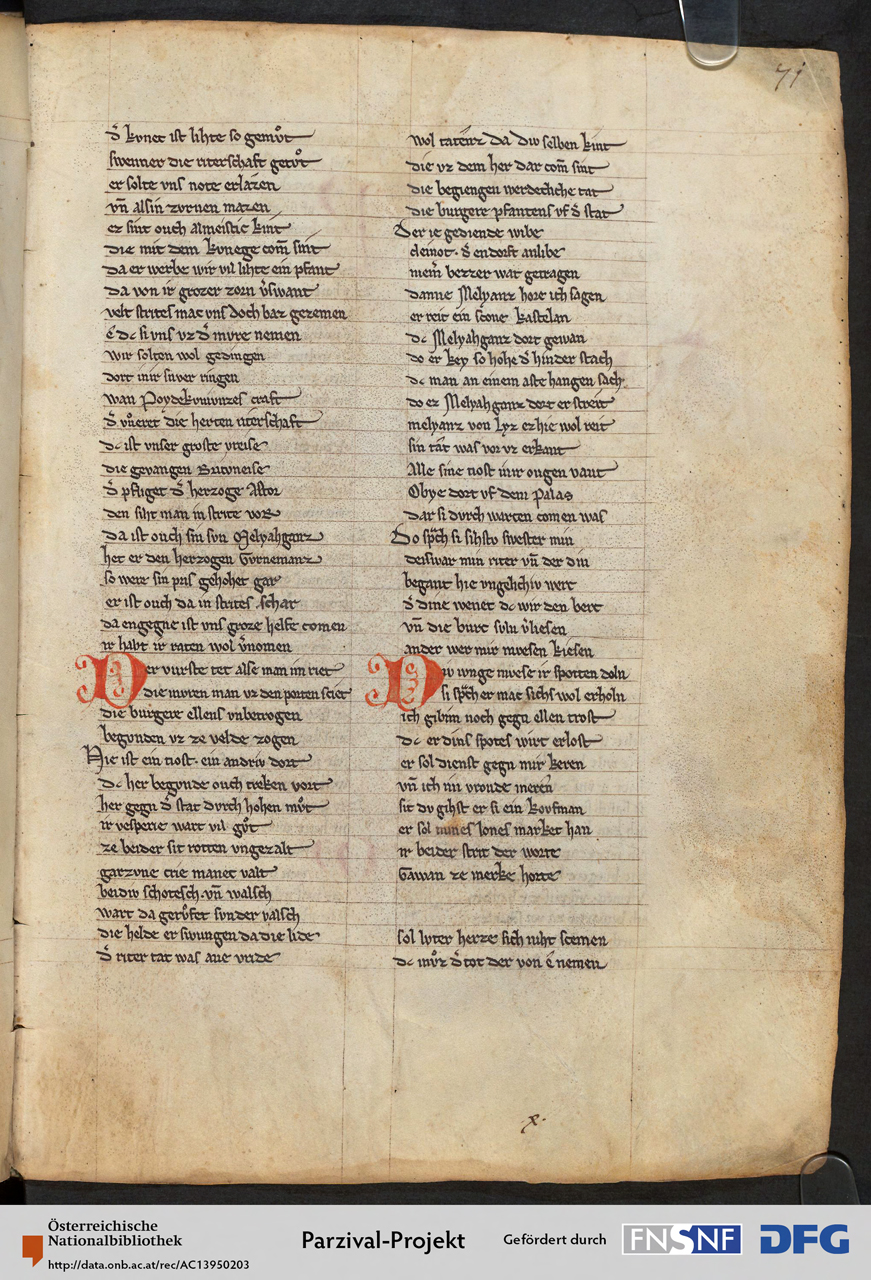 71
d̾ kvnet ist lihte so gemv̊t
swenner die riterschaft getv̊t
er solte vns note erlazen
vn̄ alsin zvrnen mazen
ez sint ouch almeistic kint
die mit dem kvnege com̄ sint
da er werbe wir vil lihte ein pfant
da von ir grozer zorn v̾swant
velt strites mac vns doch baz gezemen
e dc si vns vz d̾ mvre nemen
wir solten wol gedingen
dort mir swer ringen
wan Poydekvnvnzes craft
d̾ vu̾ret die herten riterschaft
dc ist vnser groste vreise
die gevangen Brituneise
d̾ pfliget d̾ herzoge Astor
den siht man in strite vor
da ist ouch sin svn Melyahganz
het er den herzogen Gvrnemanz
so were sin pris gehohet gar
er ist ouch da in strites schar
da engegne ist vns groze helfe comen
ir habt ir raten wol v̾nomen
Der vurste tet alse man im riet
die mvren man vz den porten sciet
die burgere ellens vnbetrogen
begvnden vz ze velde zogen
Hie ist ein tiost · ein andriv dort
dc her begvnde ouch treken vort
her gegn d̾ stat dvrch hohen mv̊t
ir vesperie wart vil gv̊t
ze beider sit rotten vngezalt
garzvne crie manec valt
beidiv schotesch vn̄ walsch
wart da gerv̊fet svnder valsch
die helde er swungen da die lide
d̾ riter tat was ane vride
wol taten̄z da div selben kint
die vz dem her dar com̄ sint
die begiengen werdecliche tat
die burgere pfantens vf d̾ stat
Der ie gediende wibe
cleinot · d̾ endorft anlibe
niem̄ bezzer wat getragen
danne Melyanz hore ich sagen
er reit ein scone kastelan
dc Melyahganz dort gewan
do er key so hohe d̾ hinder stach
dc man an einem aste hangen sach
do ez Melyahganz dort er streit
melyanz von Lyz ez hie wol reit
sin tat was vor vz erkant
Alle sine tiost inir ougen vant
Obye dort vf dem Palas
dar si dvrch warten comen was
Do spͣch si sihstv swester min
deiswar min riter vn̄ der din
begant hie vngelichiv werc
d̾ dine wenet dc wir den berc
vn̄ die burc svln v̾liesen
ander wer mir mvesen kiesen
Div ivnge mvese ir spotten doln
si spͣch er mac sichs wol erholn
ich gibim noch gegn ellen trost
dc er dins spotes wirt erlost
er sol dienst gegn mir keren
vn̄ ich im vroude meren
sit dv gihst er si ein kovfman
er sol mines lones market han
ir beider strit der worte
Gawan ze merke horte
sol lvter herze sich niht scemen
dc mv̊z d̾ tot der von e nemen
Österreichische
Nationalbibliothek
http://data.onb.ac.at/rec/AC13950203
Parzival-Projekt
Gefördert durch
FNSNF
DFG